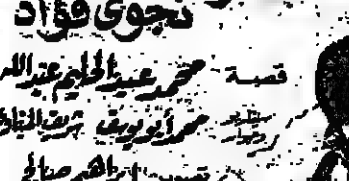 نجوى فؤاد
قصة محمد عبد الحليم عبد الله
سيناريو وحوار محمد أبو يوسف
تصوير ابراهيم صالح